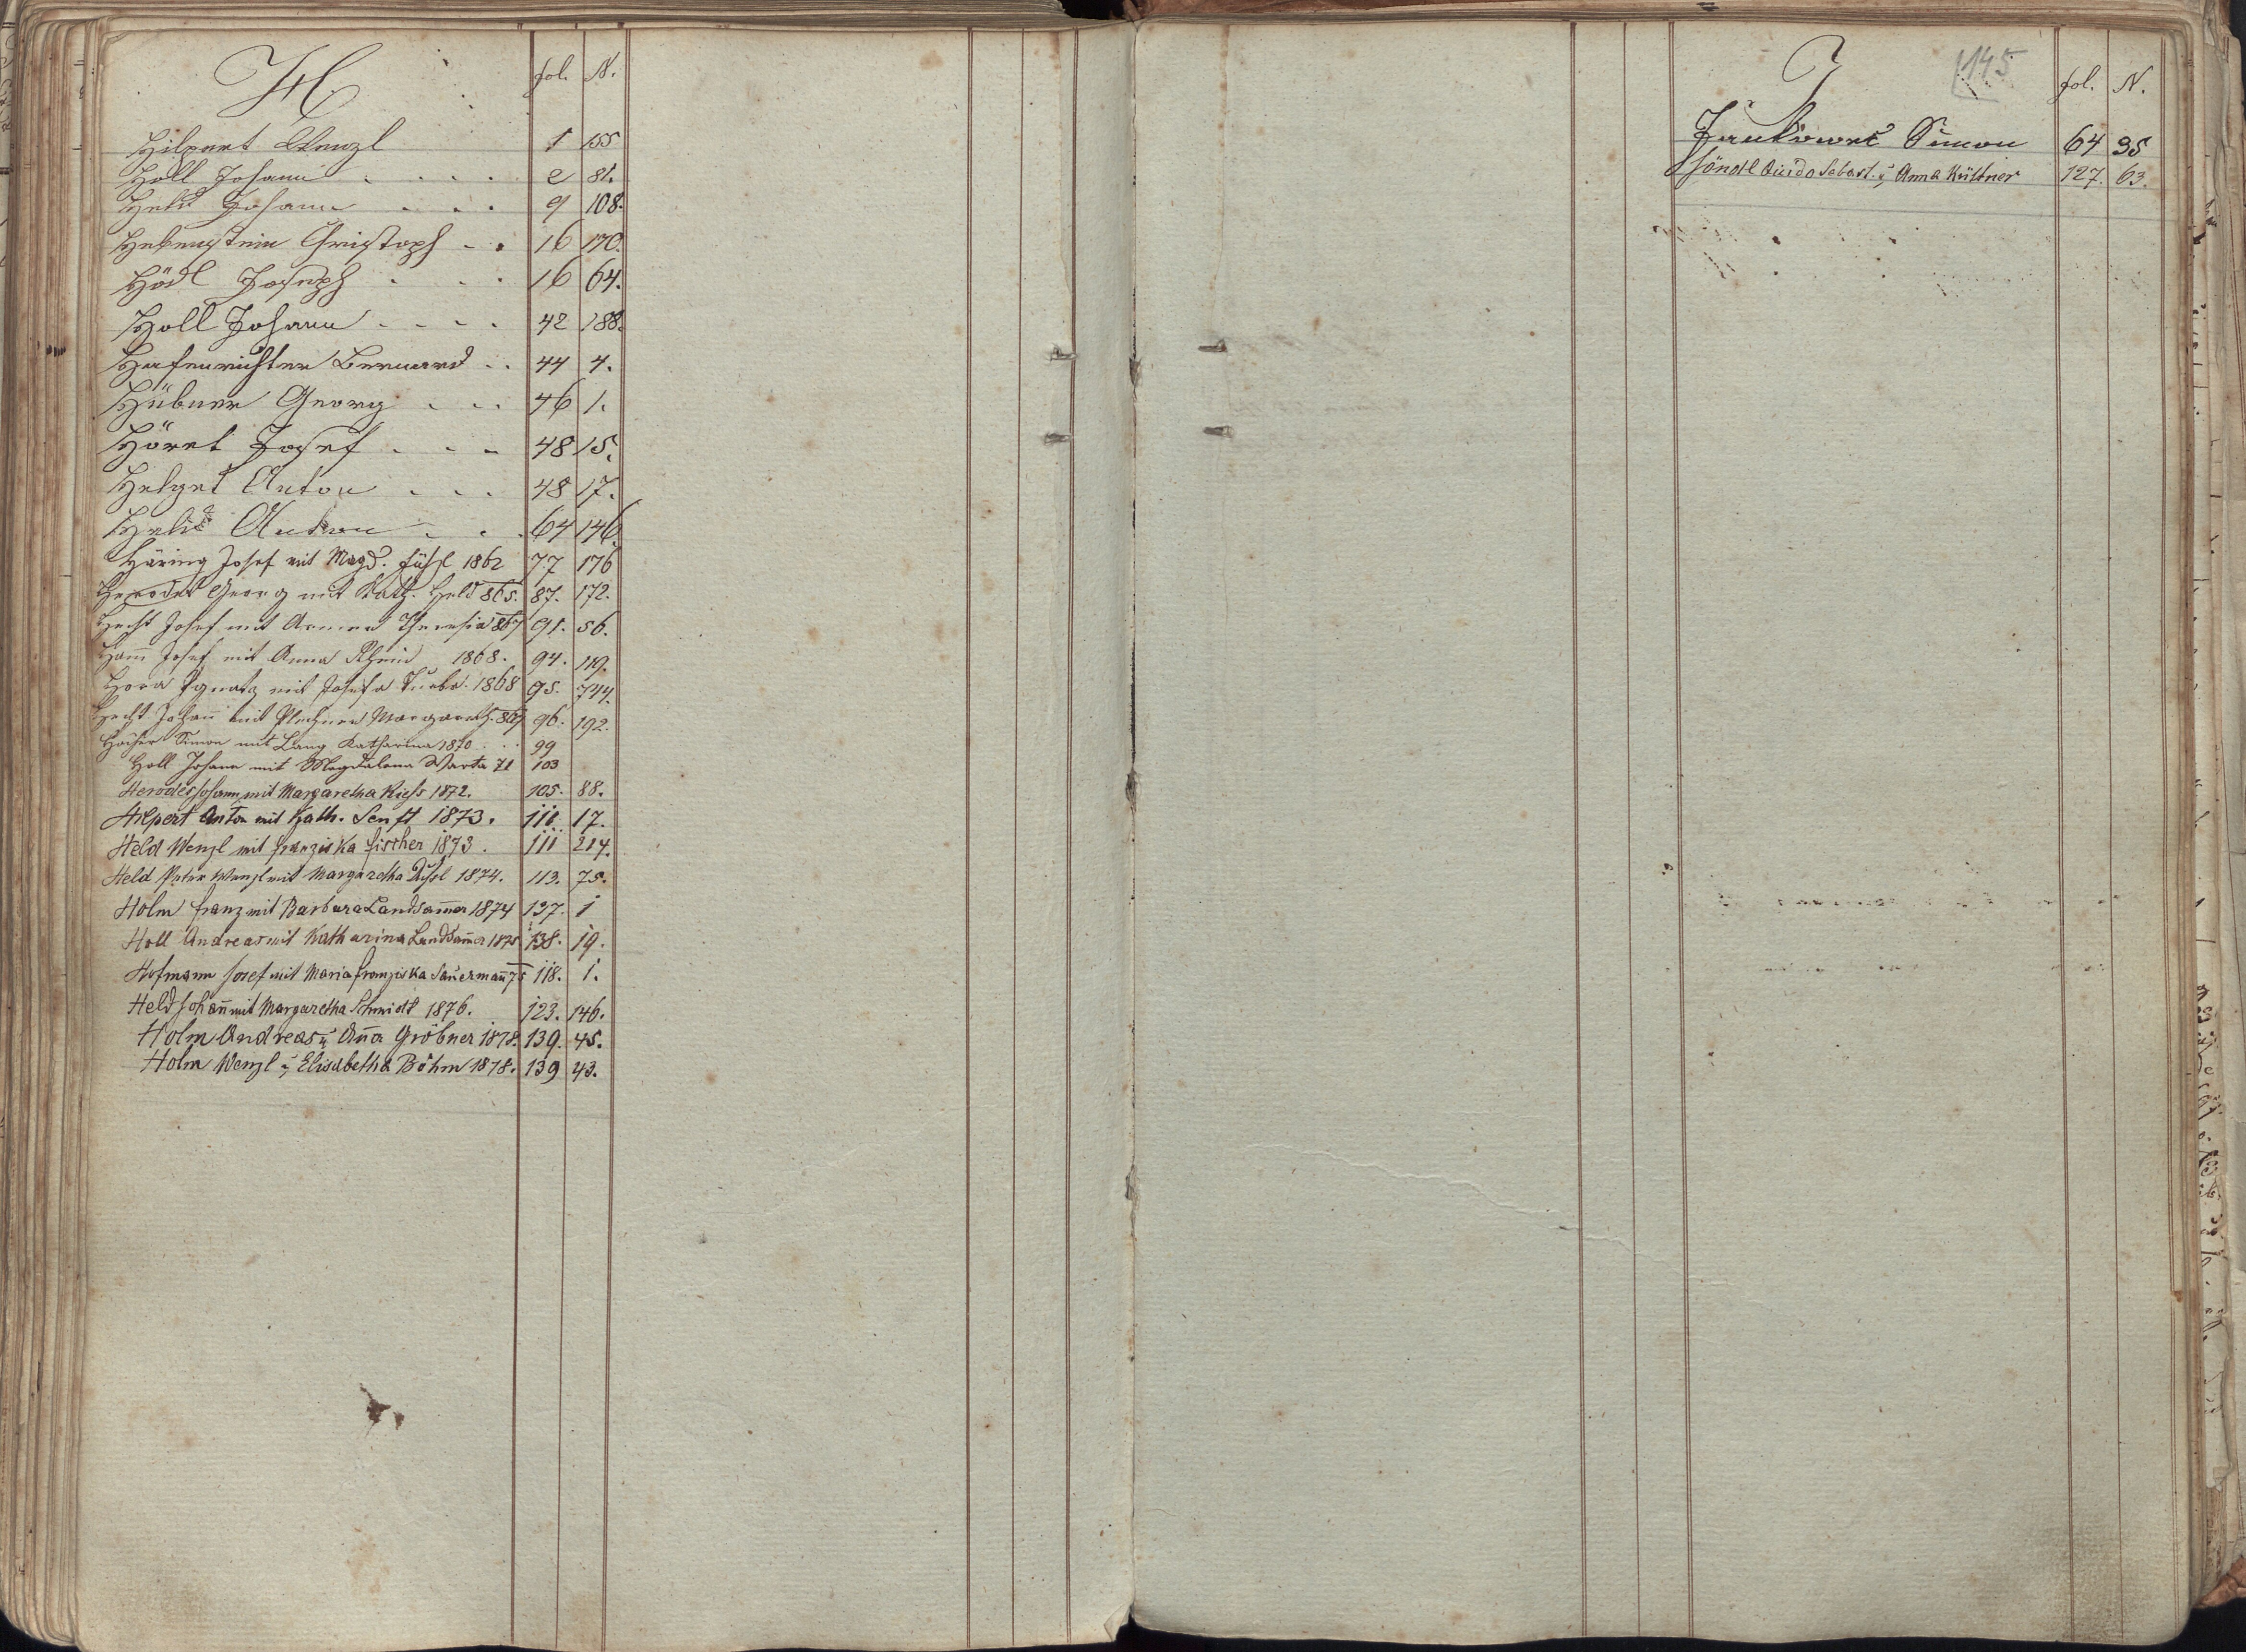 H. fol. N.
Hilpert Wenzl 1 155
Holl Johann . . . . 2 81.
Held Johann . . . 9 108.
Hebenstein Christoph . . 16 170.
Hödl Joseph . . . 16 64.
Holl Johann . . . . 42 188.
Hafenrichter Bernard . . 44 4.
Hübner Georg . . . 46 1.
Höret Josef . . . 48 15.
Helget Anton . . . 48 17.
Held Anton . . . 64 146.
Häring Josef mit Magd. 1862 77 176
Herodes Georg mit Kath. Held 865. 87. 172.
Hecht Josef mit Theresia 867 91. 56.
Ham̄ Josef mit Anna 1868. 94. 119.
Hora Ignatz mit Josefa 1868 95. 744.
Hecht Johan̄ mit Margareth. 869 96. 192.
Simon mit Lang Katharina 1870 . . . 99
Holl Johann mit Magdalena Warta 71 103
Herodes Johann mit Margaretha Kiehs 1872. 105. 88.
Hilpert Anton mit Kath. Senft 1873. 110. 17.
Held Wenzl mit franziska fischer 1873. 111 214.
Held Peter Wenzl mit Margaretha 1874. 113. 75.
Holm franz mit Barbara Landsam̄er 1874 137. 1
Holl Andreas mit Katharina Landsam̄er 1875 138. 19.
Hofmann Josef mit Maria franziska Sauerman̄ 75 118. 1.
Held Johan̄ mit Margaretha Schmidt 1876. 123. 146.
Holm Andreas u. An̄a Gröbner 1878. 139. 45.
Holm Wenzl u. Elisabetha Böhm 1878. 139 43.
J 145 fol. N.
Simon 64 35
Guido Sebast. u. Anna Küttner 127. 63.